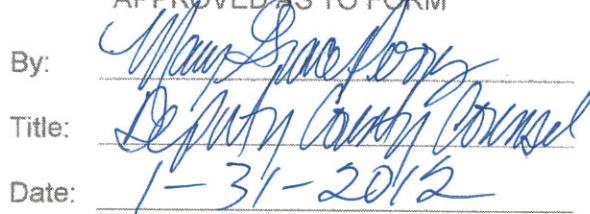 APPROVED AS TO FORM
By: Mary Grace Perry
Title: Deputy County Counsel
Date: 1-31-2012